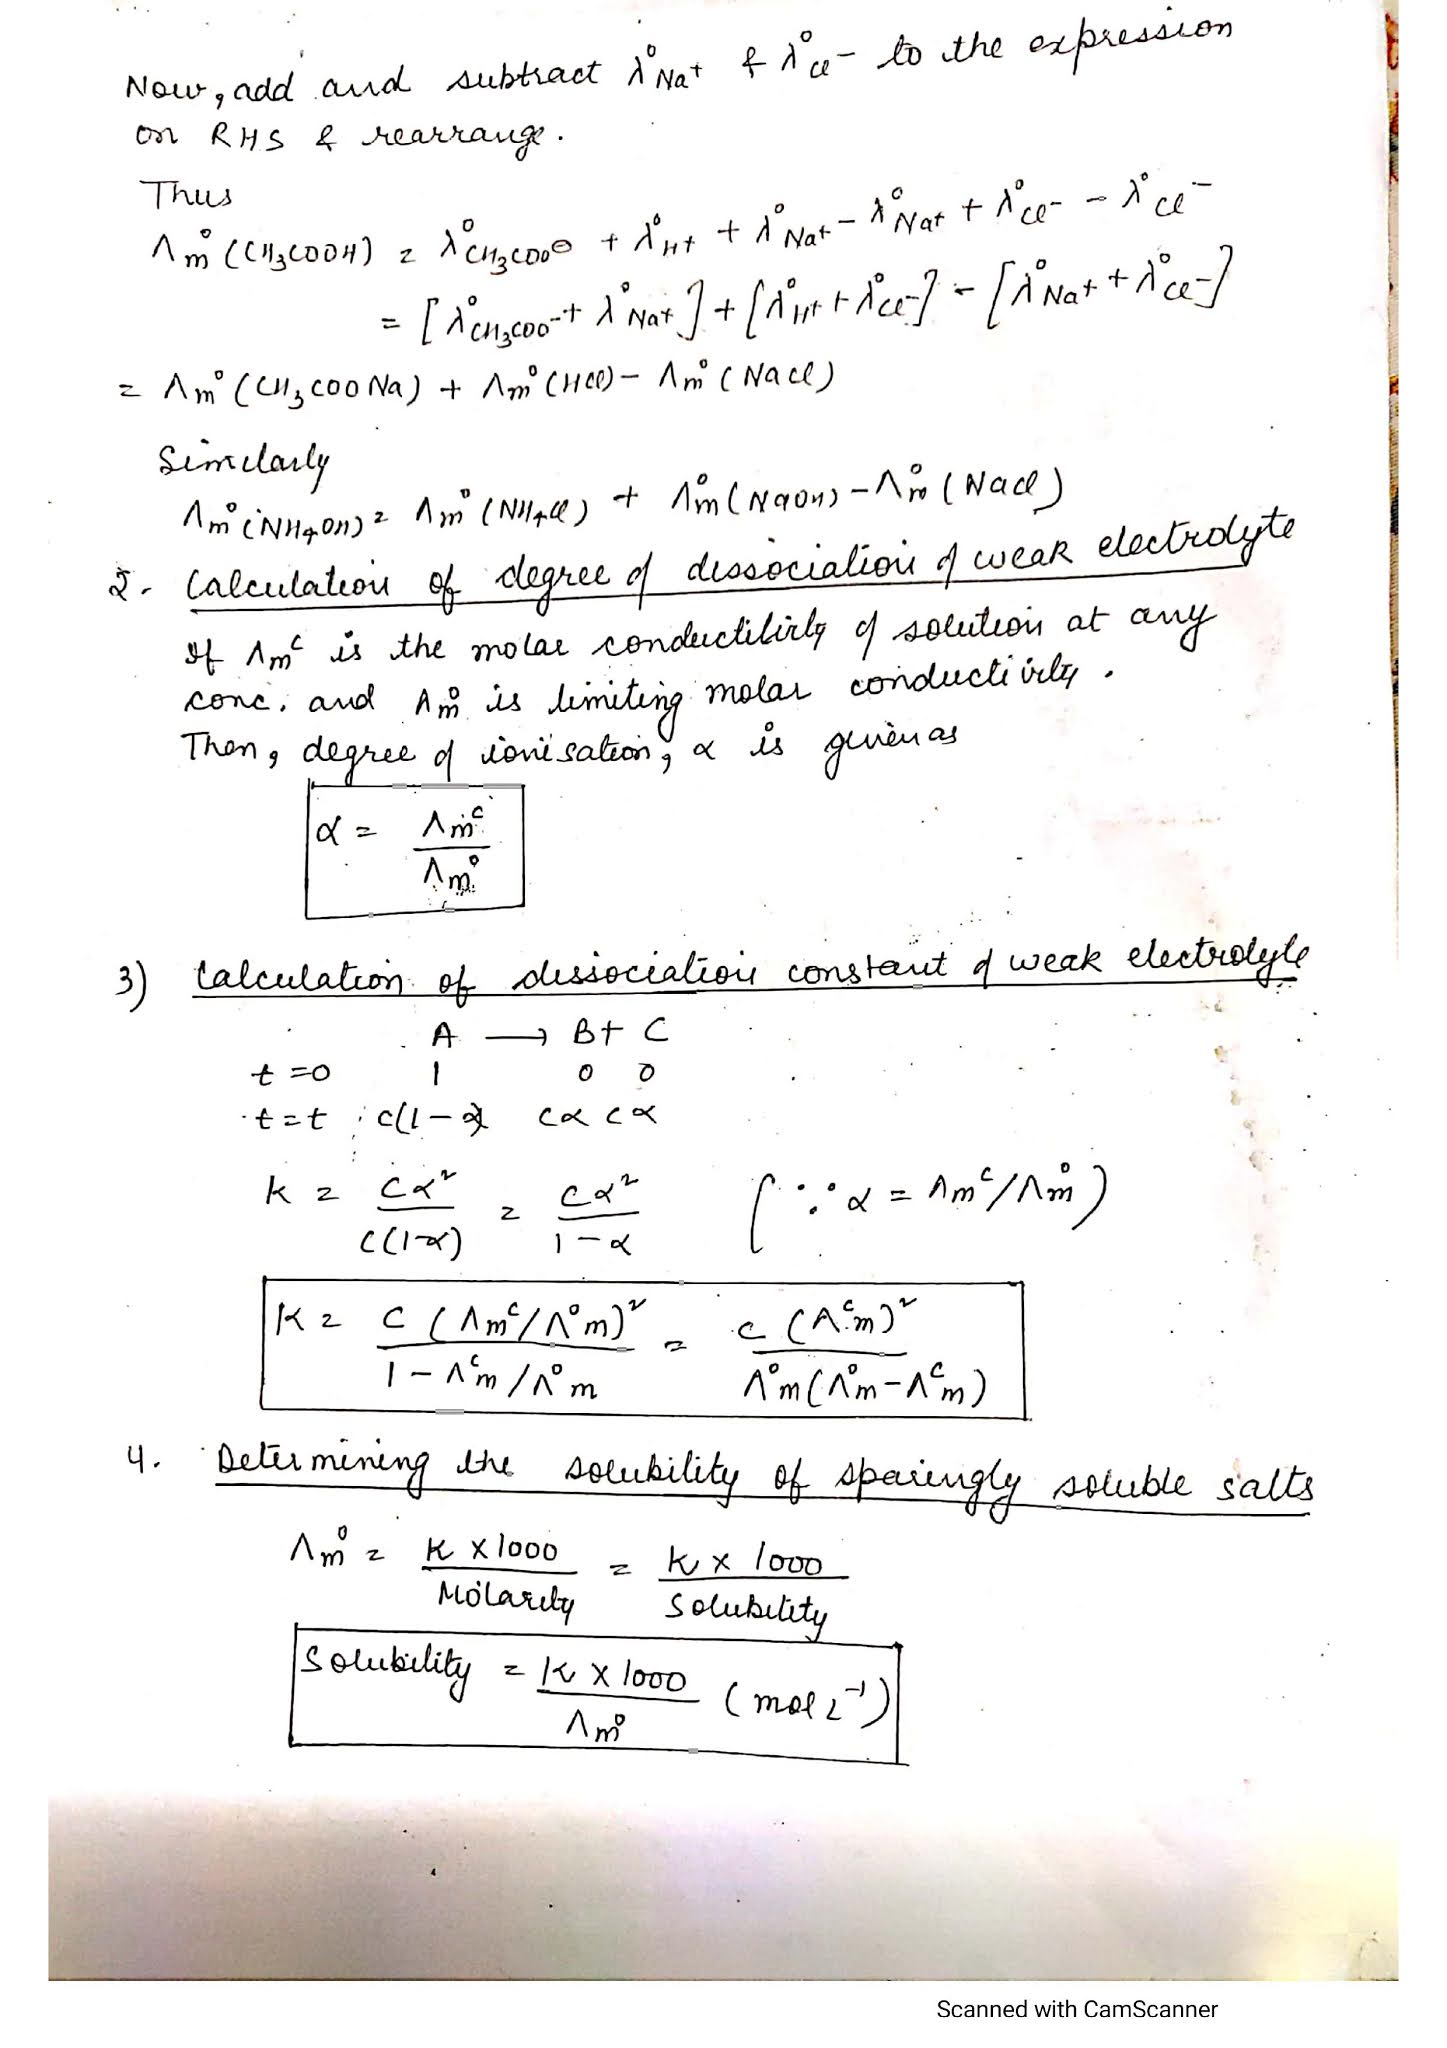 Now, add and subtract λ°Na+ & λ°Cl- to the expression
on RHS & rearrange.
Thus
Λm° (CH3COOH) = λ°CH3COO⊖ + λ°H+ + λ°Na+ - λ°Na+ + λ°Cl- - λ°Cl-
= [λ°CH3COO- + λ°Na+] + [λ°H+ + λ°Cl-] - [λ°Na+ + λ°Cl-]
= Λm° (CH3COONa) + Λm° (HCl) - Λm° (NaCl)
Similarly
Λm° (NH4OH) = Λm° (NH4Cl) + Λm° (NaOH) - Λm° (NaCl)
2. Calculation of degree of dissociation of weak electrolyte
If Λm^c is the molar conductivity of solution at any
conc. and Λm° is limiting molar conductivity.
Then, degree of ionisation, α is given as
α = Λm^c / Λm°
3) Calculation of dissociation constant of weak electrolyte
A → B + C
t=0 1 0 0
t=t c(1-α) cα cα
K = Cα² / C(1-α) = Cα² / 1-α (∵ α = Λm^c/Λm°)
K = C (Λm^c/Λ°m)² / 1 - Λ^c m/Λ°m = C (Λ^c m)² / Λ°m (Λ°m - Λ^c m)
4. Determining the solubility of sparingly soluble salts
Λm° = K x 1000 / Molarity = K x 1000 / Solubility
Solubility = K x 1000 / Λm° (mol L⁻¹)
Scanned with CamScanner